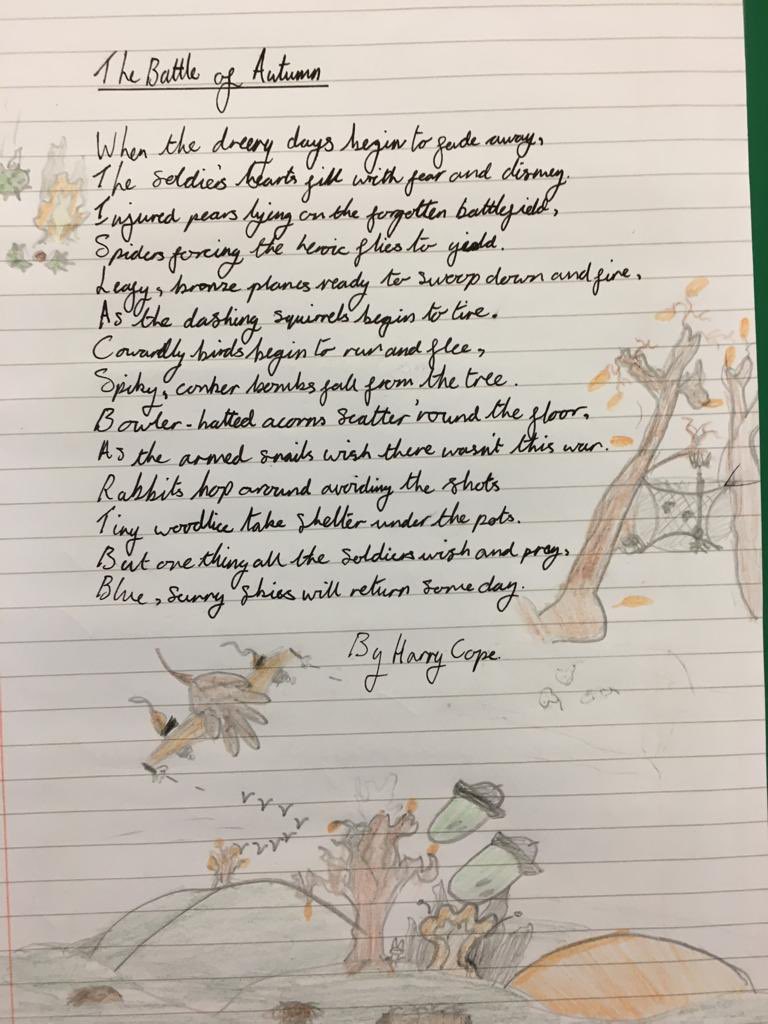 The Battle of Autumn
When the dreery days begin to fade away,
The soldie's hearts fill with fear and dismay.
Injured pears lying on the forgotten battlefield,
Spiders forcing the heroic flies to yield.
Leafy, bronze planes ready to swoop down and fire,
As the dashing squirrels begin to tire.
Cowardly birds begin to run and flee,
Spiky, conker bombs fall from the tree.
Bowler-hatted acorns scatter 'round the floor,
As the armed snails wish there wasn't this war.
Rabbits hop around avoiding the shots
Tiny woodlice take shelter under the pots.
But one thing all the soldiers wish and pray,
Blue, sunny skies will return some day.
By Harry Cope.